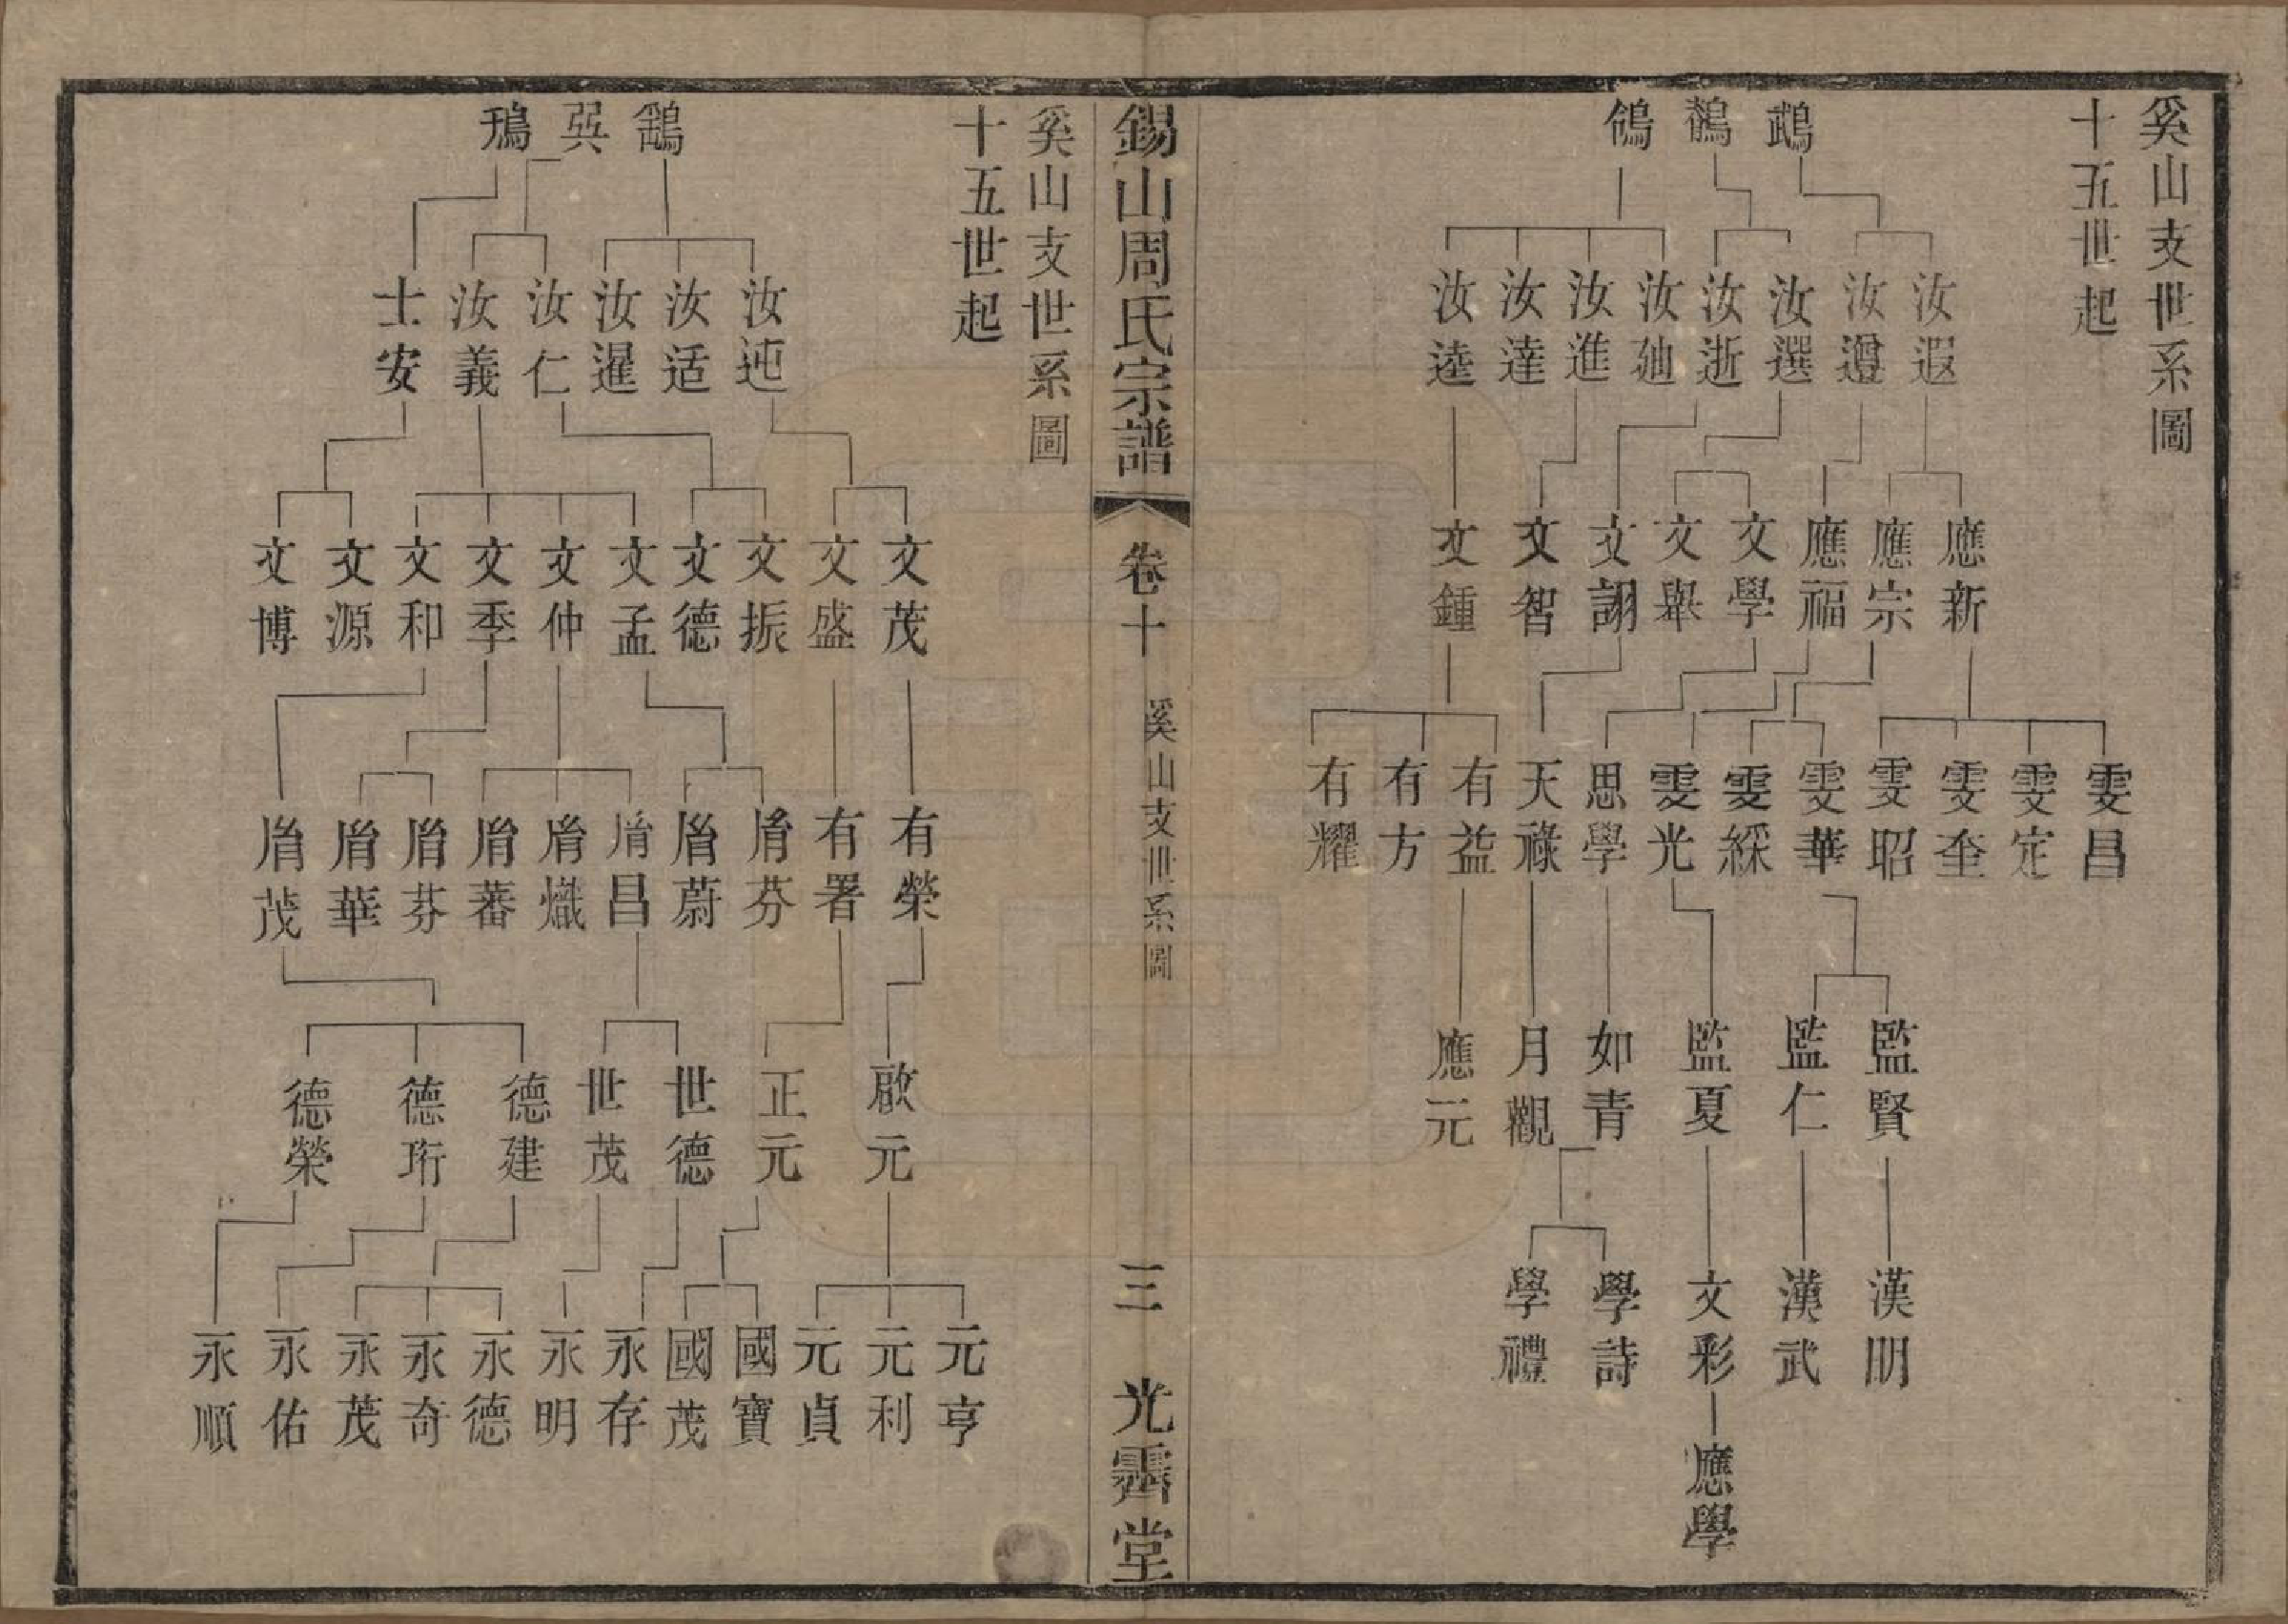 奚山支世系圖
十五世起
鵡 鶺 鴿
汝遐 汝遵 汝選 汝逝 汝迪 汝進 汝達 汝逵
應新 應宗 應福 文學 文舉 文詡 文智 文鍾
雯昌 雯定 雯奎 雯昭 雯華 雯綵 雯光 思學 天祿 有益 有方 有耀
監賢 監仁 監夏 如青 月觀 應元
漢明 漢武 文彩 學詩 學禮
應學
錫山周氏宗譜 卷十 奚山支世系圖 三 光霽堂
奚山支世系圖
十五世起
鷂 㢲 鴉
汝迍 汝适 汝暹 汝仁 汝義 士安
文茂 文盛 文振 文德 文孟 文仲 文季 文和 文源 文博
有榮 有署 胤芬 胤蔚 胤昌 胤熾 胤蕃 胤芬 胤華 胤茂
啟元 正元 世德 世茂 德建 德珩 德榮
元亨 元利 元貞 國寶 國茂 永存 永明 永德 永奇 永茂 永佑 永順